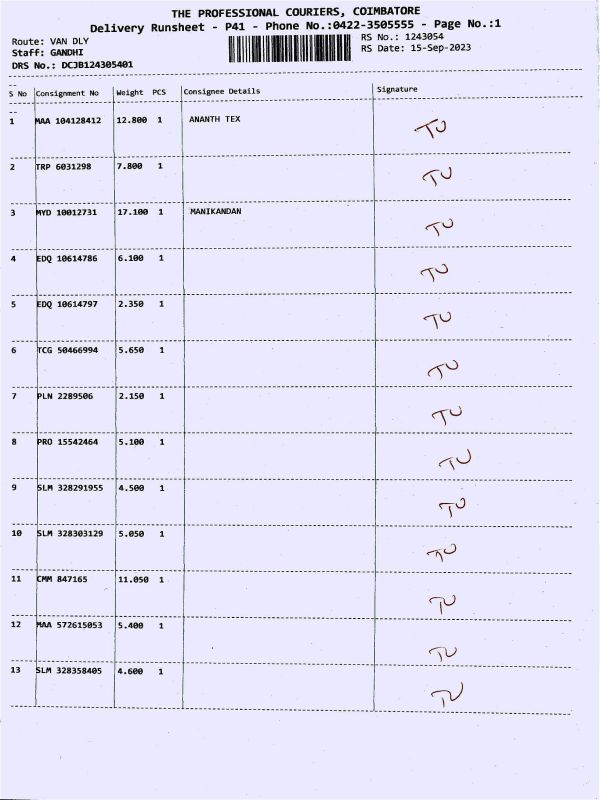 THE PROFESSIONAL COURIERS, COIMBATORE
Delivery Runsheet - P41 - Phone No.:0422-3505555 - Page No.:1
Route: VAN DLY
Staff: GANDHI
DRS No.: DCJB124305401
RS No.: 1243054
RS Date: 15-Sep-2023
S No Consignment No Weight PCS Consignee Details Signature
1 MAA 104128412 12.800 1 ANANTH TEX TU
2 TRP 6031298 7.800 1 TU
3 MYD 10012731 17.100 1 MANIKANDAN TU
4 EDQ 10614786 6.100 1 TU
5 EDQ 10614797 2.350 1 TU
6 TCG 50466994 5.650 1 TU
7 PLN 2289506 2.150 1 TU
8 PRO 15542464 5.100 1 TU
9 SLM 328291955 4.500 1 TU
10 SLM 328303129 5.050 1 TU
11 CMM 847165 11.050 1 TU
12 MAA 572615053 5.400 1 TU
13 SLM 328358405 4.600 1 TU